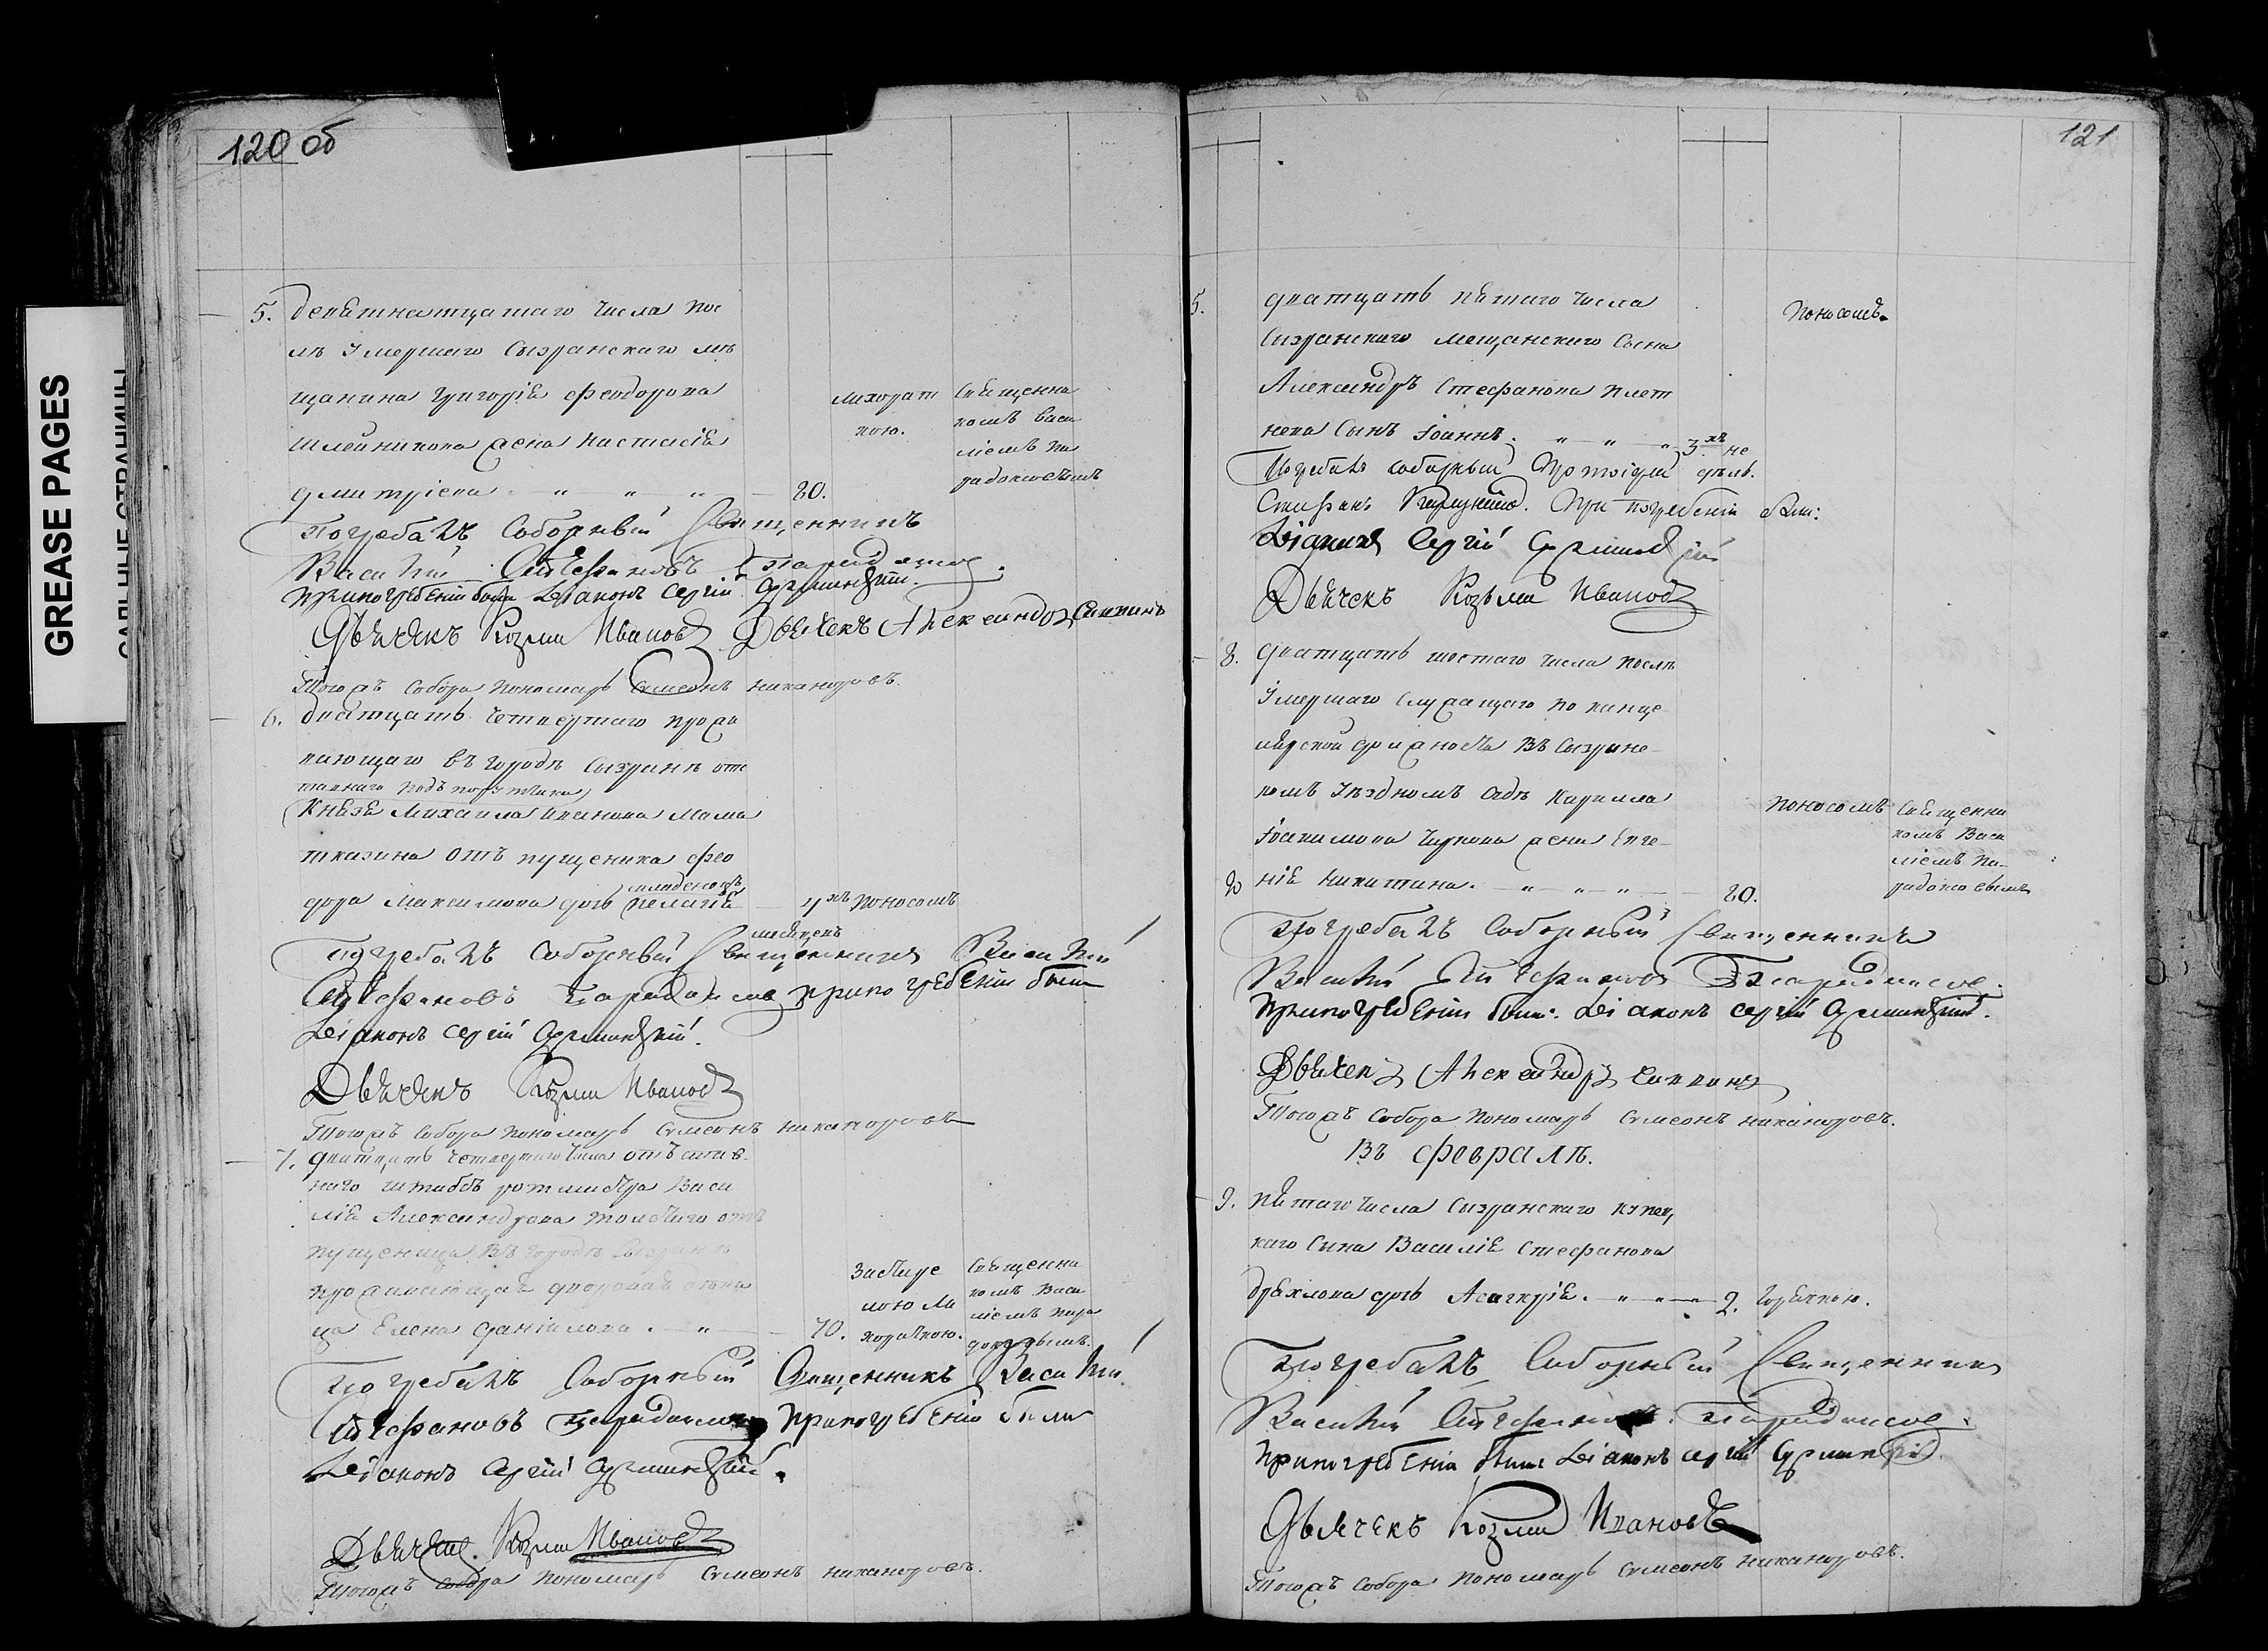 GREASE PAGES
120 об
5. девятнатцатаго числа пос
лѣ умершаго Сызранскаго мѣ
щанина Григорія Феодорова
Шлейникова жена Настасія
дмитріева 80.
лихорат
кою.
Священни
комъ Васи
ліемъ Па
радоксовымъ
Погребалъ Соборный Священникъ
Василій Стефановъ Парадоксов.
при погребеніи были Діаконъ Сергій
Дьячекъ Козма Ивановъ Дьячекъ Александръ
Тогожъ Собора пономарь Симеонъ Никаноровъ.
6. Дватцать четвертаго прожи
вающаго въ городѣ Сызранѣ отс
тавнаго подъ порутчика
Князя Михаила Иванова Мама
тказина отъ пущеника Фео
дора Максимова дочь младенецъ Пелагія
4хъ мѣсяцевъ
поносомъ
Погребалъ Соборный Священникъ Василій
Стефановъ Парадоксов при погребеніи были
Діаконъ Сергій
Дьячекъ Козма Ивановъ
Тогожъ Собора пономарь Симеонъ Никаноровъ
7. дватцать четвертаго числа отъ став
наго штабсъ ротмистра Васи
лія Александрова Толстаго отъ
пущеница въ городѣ Сызранѣ
проживающая дворовая дѣви
ца Елена Даніилова 70.
застаре
лою ли
хораткою.
Священни
комъ Васи
ліемъ Пара
доксовымъ.
Погребалъ Соборный Священникъ Василій
Стефановъ Парадоксов при погребеніи были
Діаконъ Сергій
Дьячекъ Козма Ивановъ
Тогожъ Собора пономарь Симеонъ Никаноровъ.
121
5. дватцать пятаго числа
Сызранскаго мещанскаго сына
Александръ Стефанова Плет
нева сынъ Іоаннъ. 3хъ не
дѣль.
поносомъ.
Погребалъ соборный Протоіерей
Стефанъ При погребеніи были:
Діаконъ Сергій
Дьячекъ Козьма Ивановъ
8. Дватцать шостаго числа послѣ
умершаго служащаго по канце
лярской должности въ Сызране
комъ Уѣздномъ Судѣ Кирилла
Іоакимова Чиркова жена Евге
нія Никитина. 80.
поносомъ
Священни
комъ Васи
ліемъ Па
радоксовымъ
Погребалъ Соборный Священникъ
Василій Стефановъ Парадоксов.
При погребеніи были: Діаконъ Сергій
Дьячекъ Александръ
Тогожъ Собора пономарь Симеонъ Никаноровъ.
Въ Февралѣ.
9. пятаго числа Сызранскаго купец
каго сына Василія Стефанова
Дряхлова дочь Агагклія. 2.
горячкою.
Погребалъ Соборный Священникъ
Василій Стефановъ Парадоксов.
При погребеніи были Діаконъ Сергій
Дьячекъ Козма Ивановъ
Тогожъ Собора пономарь Симеонъ Никаноровъ.